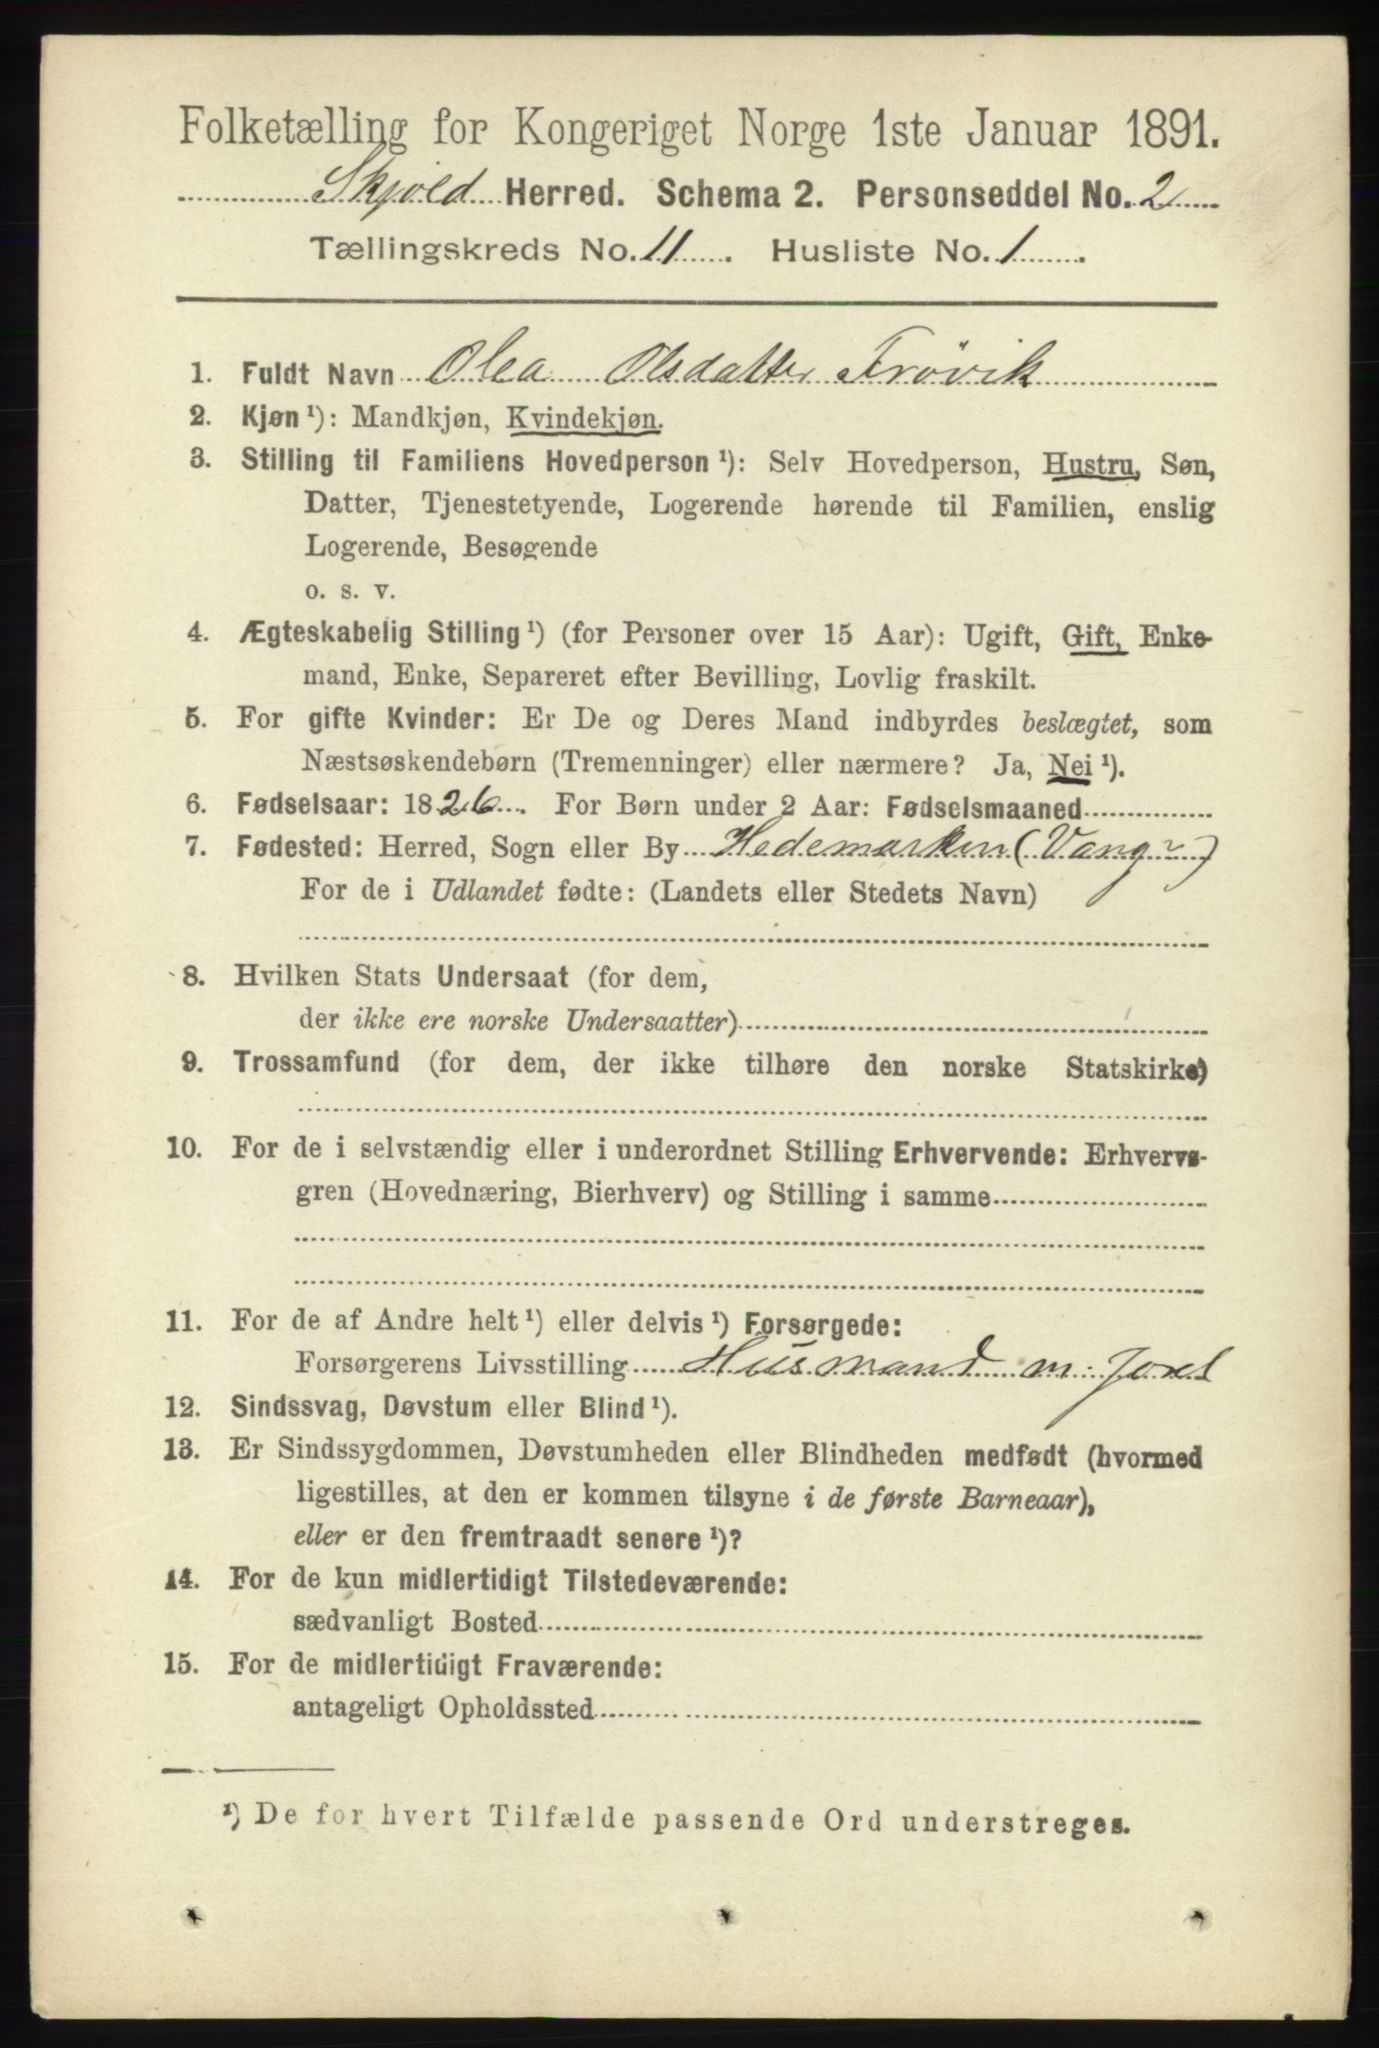 Folketælling for Kongeriget Norge 1ste Januar 1891.
Skjold Herred. Schema 2. Personseddel No. 2
Tællingskreds No. 11. Husliste No. 1.
1. Fuldt Navn Olea Olsdatter Frövik
2. Kjøn ¹): Mandkjøn, Kvindekjøn.
3. Stilling til Familiens Hovedperson ¹): Selv Hovedperson, Hustru, Søn,
Datter, Tjenestetyende, Logerende hørende til Familien, enslig
Logerende, Besøgende
o. s. v.
4. Ægteskabelig Stilling ¹) (for Personer over 15 Aar): Ugift, Gift, Enke-
mand, Enke, Separeret efter Bevilling, Lovlig fraskilt.
5. For gifte Kvinder: Er De og Deres Mand indbyrdes beslægtet, som
Næstsøskendebørn (Tremenninger) eller nærmere? Ja, Nei ¹).
6. Fødselsaar: 1826. For Børn under 2 Aar: Fødselsmaaned
7. Fødested: Herred, Sogn eller By Hedemarken (Vang?)
For de i Udlandet fødte: (Landets eller Stedets Navn)
8. Hvilken Stats Undersaat (for dem,
der ikke ere norske Undersaatter)
9. Trossamfund (for dem, der ikke tilhøre den norske Statskirke)
10. For de i selvstændig eller i underordnet Stilling Erhvervende: Erhvervs-
gren (Hovednæring, Bierhverv) og Stilling i samme
11. For de af Andre helt ¹) eller delvis ¹) Forsørgede:
Forsørgerens Livsstilling Husmand m. Jord
12. Sindssvag, Døvstum eller Blind ¹).
13. Er Sindssygdommen, Døvstumheden eller Blindheden medfødt (hvormed
ligestilles, at den er kommen tilsyne i de første Barneaar),
eller er den fremtraadt senere ¹)?
14. For de kun midlertidigt Tilstedeværende:
sædvanligt Bosted
15. For de midlertidigt Fraværende:
antageligt Opholdssted
¹) De for hvert Tilfælde passende Ord understreges.